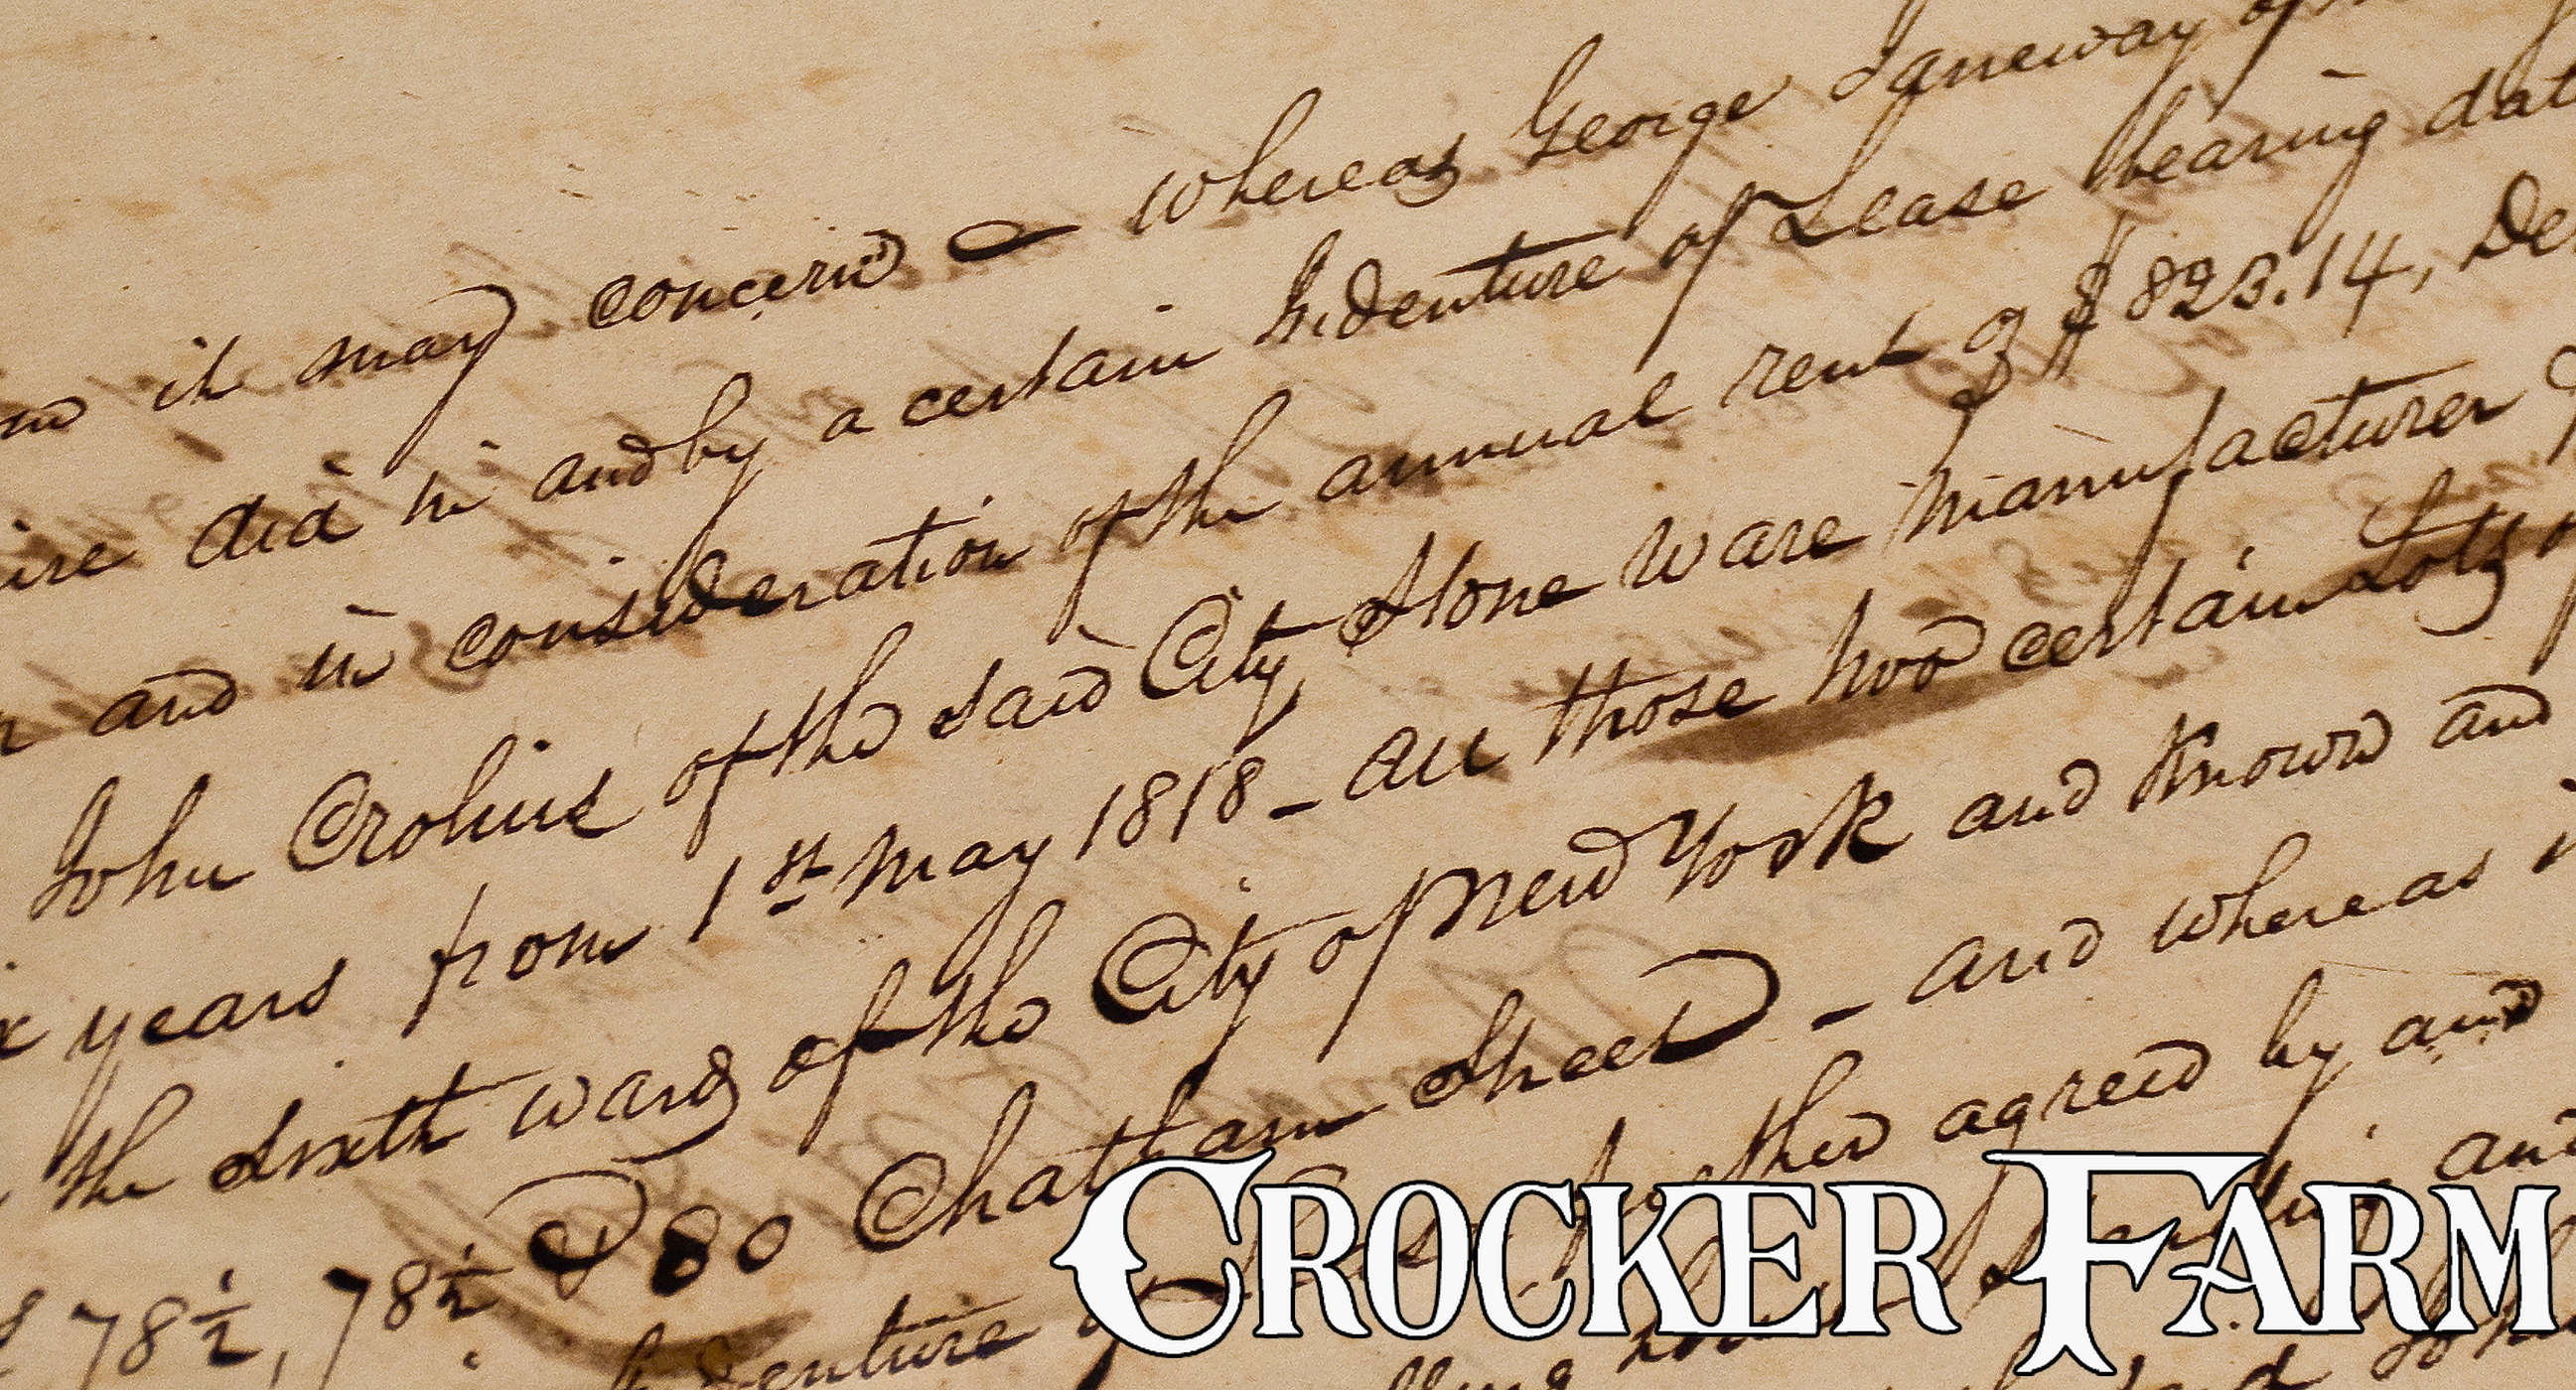 it may concern – whereas George Janeway of
did in and by a certain Indenture of Lease bearing dat
and in consideration of the annual rent of $823.14, De
John Crolius of the said City Stone ware manufacturer
years from 1st May 1818 – all those two certain Lotts
the Sixth ward of the City of New York and known and
78½, 78½ & 80 Chatham Street – and whereas
Indenture of further agreed by and
and
CROCKER FARM